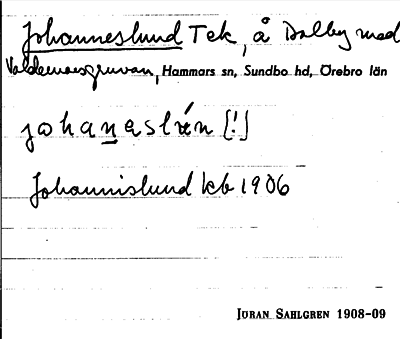 Johanneslund Tek, å Dalby med
Valdemarsgruvan, Hammars sn, Sundbo hd, Örebro län
[!]
Johannislund kb 1906
JÖRAN SAHLGREN 1908-09